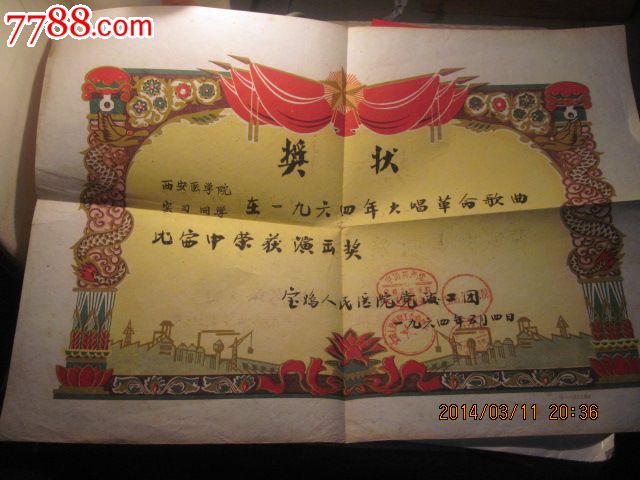 7788.com
奖状
西安医学院
实习同学
在一九六四年大唱革命歌曲
比赛中荣获演出奖
宝鸡人民医院党政工团
一九六四年五月四日
2014/03/11 20:36